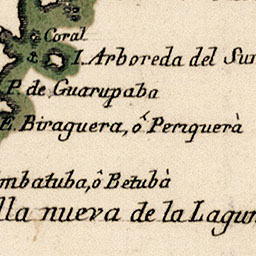 Coral
I. Arboreda del Sur
P. de Guarupaba
E. Biraguera, ó Periquerà
mbatuba, ô Betubà
lla nueva de la Lagun